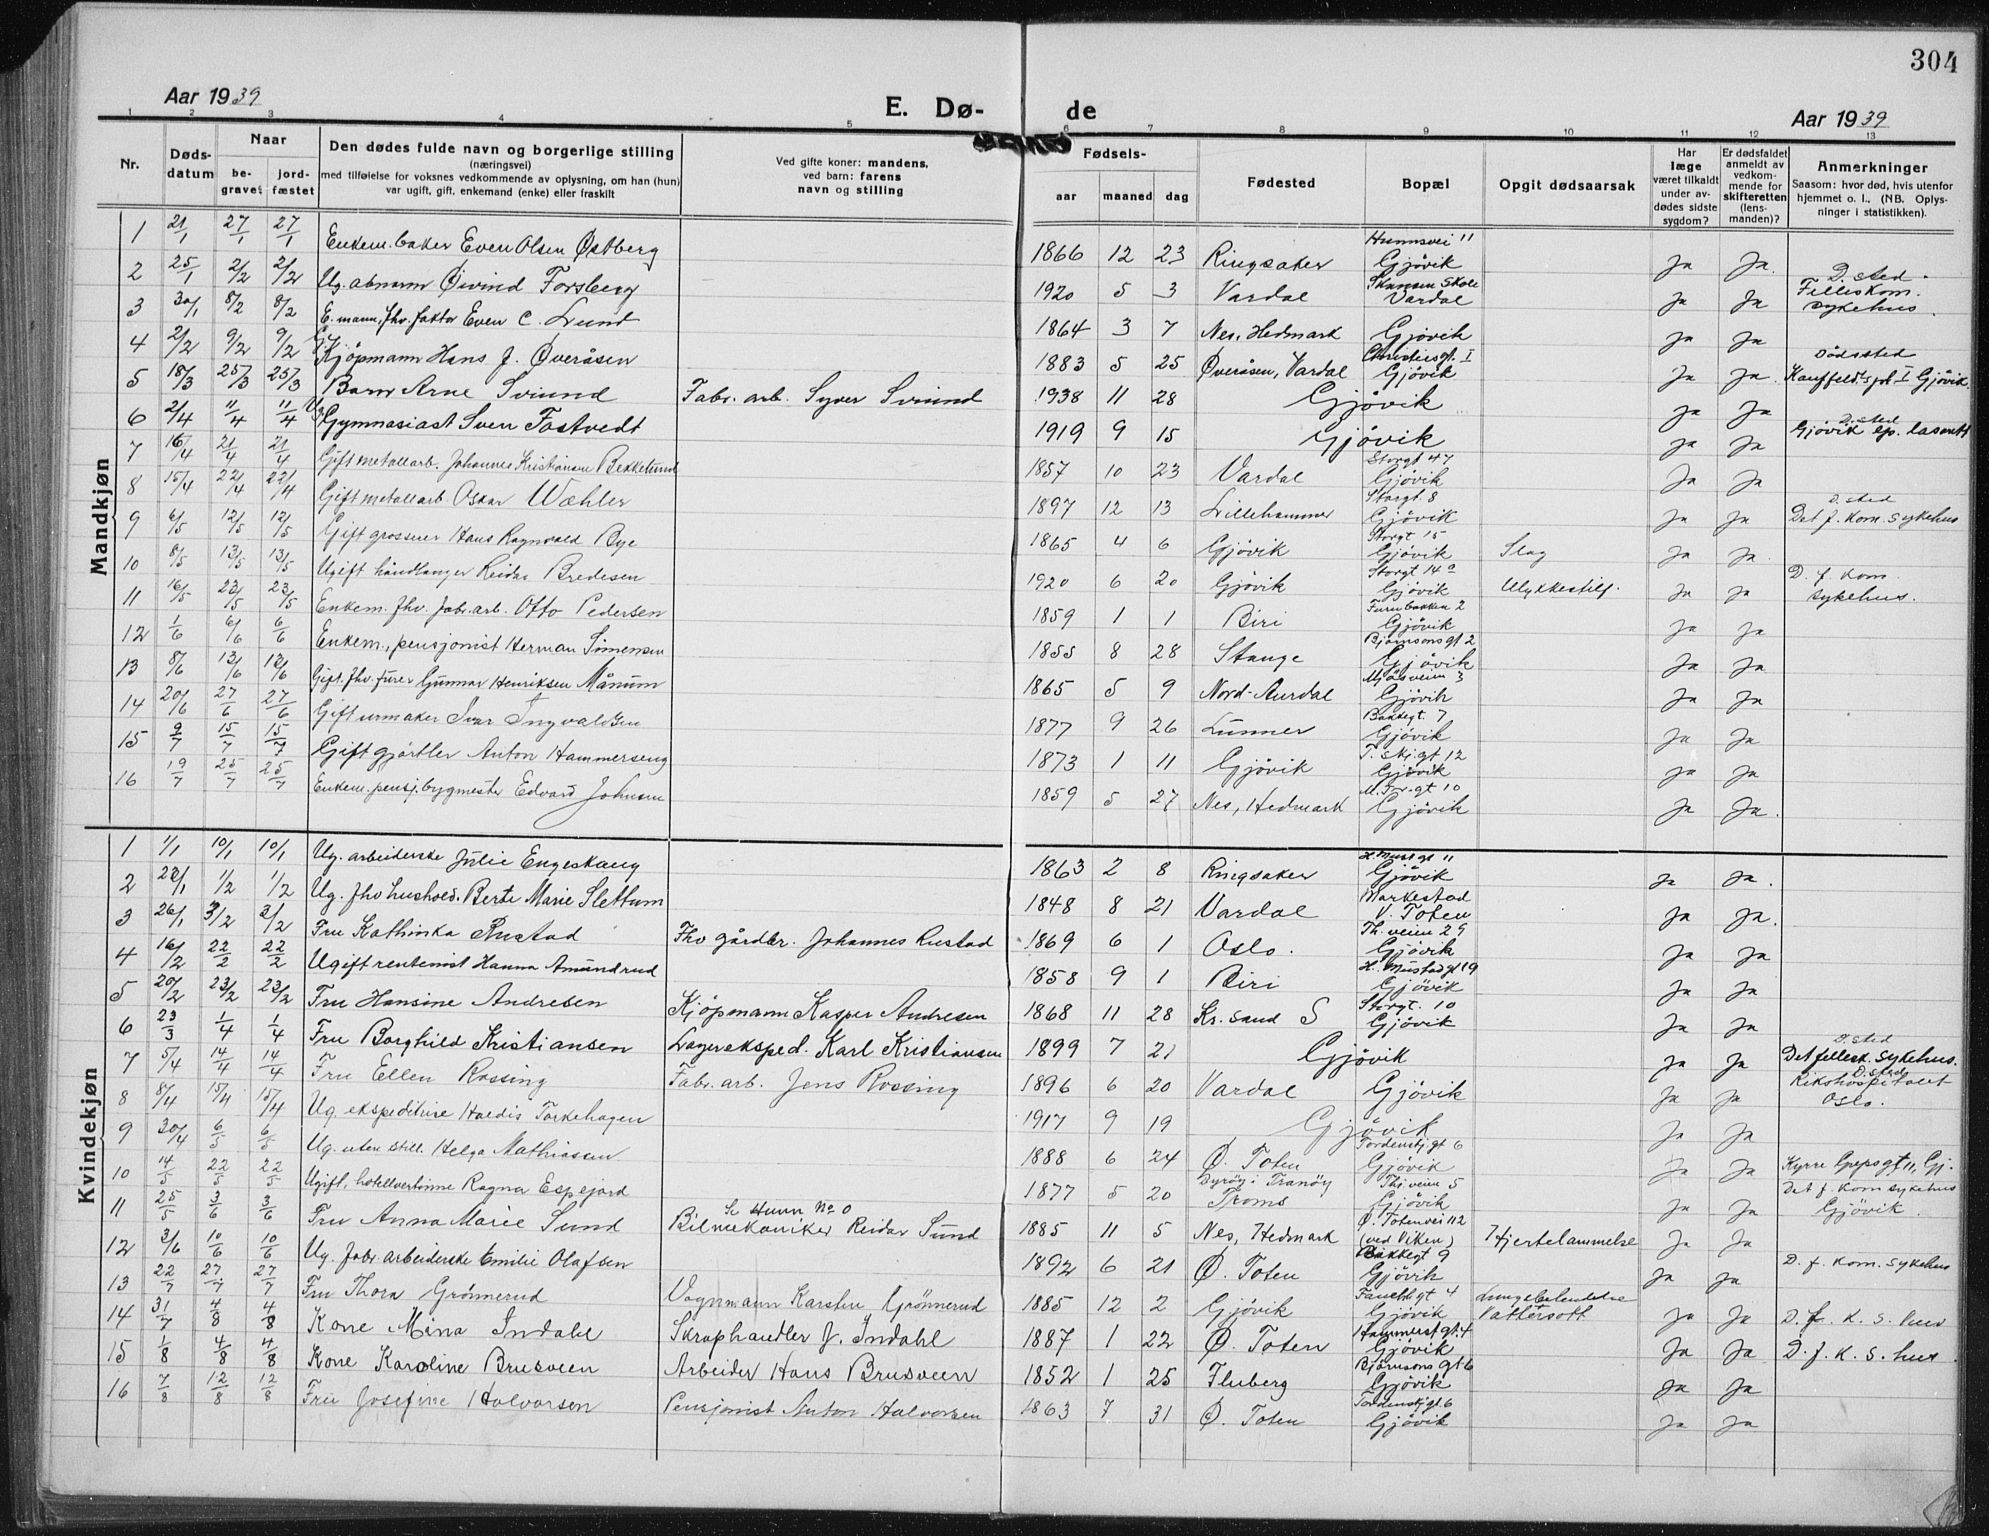 304
Aar 1939 E. Dø- de Aar 1939
1 2 3 4 5 6 7 8 9 10 11 12 13
Nr. Døds-datum Naar be-gravet jord-fæstet Den dødes fulde navn og borgerlige stilling (næringsvei) med tilføielse for voksnes vedkommende av oplysning, om han (hun) var ugift, gift, enkemand (enke) eller fraskilt Ved gifte koner: mandens, ved barn: farens navn og stilling Fødsels- aar maaned dag Fødested Bopæl Opgit dødsaarsak Har læge været tilkaldt under av-dødes sidste sygdom? Er dødsfaldet anmeldt av vedkom-mende for skifteretten (lens-manden)? Anmerkninger Saasom: hvor død, hvis utenfor hjemmet o. l., (NB. Oplys-ninger i statistikken).
Mandkjøn
1 21/1 27/1 27/1 Enkem. baker Even Olsen Østberg 1866 12 23 Ringsaker Hunnsvei 11 Gjøvik Ja Ja.
2 25/1 2/2 2/2 Ug. abnorm Øivind Forsberg 1920 5 3 Vardal Skansen Skole Vardal Ja Ja D.sted. Felleskom. sykehus.
3 30/1 8/2 8/2 E.mann, fhv. faktor Even C. Lund 1864 3 7 Nes, Hedmark Gjøvik Ja Ja
4 2/2 9/2 9/2 G. Kjøpmann Hans J. Øveråsen 1883 5 25 Øveråsen, Vardal Christiesgt. I Gjøvik Ja Ja. Dødssted Kauffeldts pl. I Gjøvik.
5 18/3 25/3 25/3 Barn Arne Sviund Fabr. arb. Syver Sviund 1938 11 28 Gjøvik Ja Ja
6 2/4 11/4 11/4 Ug. Gymnasiast Sven Tostvedt 1919 9 15 Gjøvik Ja Ja D.sted Gjøvik ep. lasarett
7 16/4 21/4 21/4 Gift metallarb. Johannes Kristiansen Bekkelund 1857 10 23 Vardal Storgt 47 Gjøvik Ja Ja
8 15/4 22/4 22/4 Gift metallarb. Oskar Wæhler 1897 12 13 Lillehammer Storgt. 8 Gjøvik Ja Ja D.sted Det f. kom. sykehus
9 6/5 12/5 12/5 Gift grosserer Hans Ragnvald Bye 1865 4 6 Gjøvik Storgt 15 Gjøvik Slag Ja Ja.
10 8/5 13/5 13/5 Ugift håndlanger Reidar Bredesen 1920 6 20 Gjøvik Storgt 14a Gjøvik Ulykkestilf. Ja Ja D. f. kom. sykehus.
11 16/5 23/5 23/5 Enkem. fhv. fabr. arb. Otto Pedersen 1859 1 1 Biri Furubakken 2 Gjøvik Ja Ja
12 1/6 6/6 6/6 Enkem., pensjonist Herman Simensen 1855 8 28 Stange Bjørnsonsgt. 2 Gjøvik Ja Ja.
13 8/6 13/6 13/6 Gift. fhv. furer Gunnar Henriksen Månum 1865 5 9 Nord-Aurdal Mjøsveien 3 Gjøvik Ja Ja
14 20/6 27/6 27/6 Gift urmaker Ivar Ingvaldsen 1877 9 26 Lunner Bakkegt. 7 Gjøvik Ja Ja
15 9/7 15/7 15/7 Gift gjørtler Anton Hammerseng 1873 1 11 Gjøvik T. skj.gt 12 Gjøvik Ja Ja
16 19/7 25/7 25/7 Enkem. pensj. bygmester Edvard Johnsen 1859 5 27 Nes, Hedmark N. Fr. gt 10 Gjøvik Ja Ja.
Kvindekjøn
1 1/1 10/1 10/1 Ug. arbeiderske Julie Engeskaug 1863 2 8 Ringsaker H. Must gt 11 Gjøvik Ja Ja.
2 22/1 1/2 1/2 Ug. fhv hushold. Berte Marie Slettum 1848 8 21 Vardal Markestad V. Toten Ja Ja.
3 26/1 3/2 3/2 Fru Kathinka Rustad Fhv gårdbr. Johannes Rustad 1869 6 1 Oslo. Th. veien 29 Gjøvik Ja Ja
4 16/2 22/2 22/2 Ugift rentenist Hanna Amundrud 1858 9 1 Biri H. Mustadgt 19 Gjøvik Ja Ja
5 20/2 23/2 23/2 Fru Hansine Andresen Kjøpmann Kasper Andresen 1868 11 28 Kr. sand S Storgt. 10 Gjøvik Ja Ja
6 23/3 1/4 1/4 Fru Borghild Kristiansen Lagereksped. Karl Kristiansen 1899 7 21 Gjøvik Ja Ja D.sted Det fellesk. sykehus.
7 5/4 14/4 14/4 Fru Ellen Rossing Fabr. arb. Jens Rossing 1896 6 20 Vardal Gjøvik Ja Ja D.sted Rikshospitalet Oslo.
8 8/4 15/4 15/4 Ug. ekspeditrise Haldis Torkehagen 1917 9 19 Gjøvik Ja Ja
9 30/4 6/5 6/5 Ug. uten still. Helga Mathiasen 1888 6 24 Ø. Toten Tordenskj gt 6 Gjøvik Ja Ja Kyrre Grepsgt 11, Gj.
10 14/5 22/5 22/5 Ugift, hotellvertinne Ragna Espejord 1877 5 20 Dyrøy i Tranøy Troms Thj. veien 5 Gjøvik Ja Ja Det f. kom sykehus Gjøvik.
11 25/5 3/6 3/6 Fru Anna Marie Sund Se Hunn No 0 Bilmekaniker Reidar Sund 1885 11 5 Nes, Hedmark Ø. Totenvei 112 (ved Viken) Hjertelammelse Ja Ja
12 3/6 10/6 10/6 Ug. fabr. arbeiderske Emilie Olafsen 1892 6 21 Ø. Toten Bakkegt 9 Gjøvik Ja Ja D. f. kom. sykehus
13 22/7 27/7 27/7 Fru Thora Grønnerud Vognmann Karsten Grønnerud 1885 12 2 Gjøvik Fauchl.gt 4 Gjøvik Lungebetendelse Vattersott Ja Ja D. f. K. S. hus
14 31/7 4/8 4/8 Kone Mina Indahl Skraphandler J. Indahl 1887 1 22 Ø. Toten Hammerst.gt. 4 Gjøvik Ja Ja D. f. K. S. hus.
15 1/8 4/8 4/8 Kone Karoline Brusveen Arbeider Hans Brusveen 1852 1 25 Fluberg Bjørnsons gt 6 Gjøvik Ja Ja
16 7/8 12/8 12/8 Fru Josefine Halvorsen Pensjonist Anton Halvorsen 1863 7 31 Ø. Toten Tordenskj gt. 6 Gjøvik Ja Ja